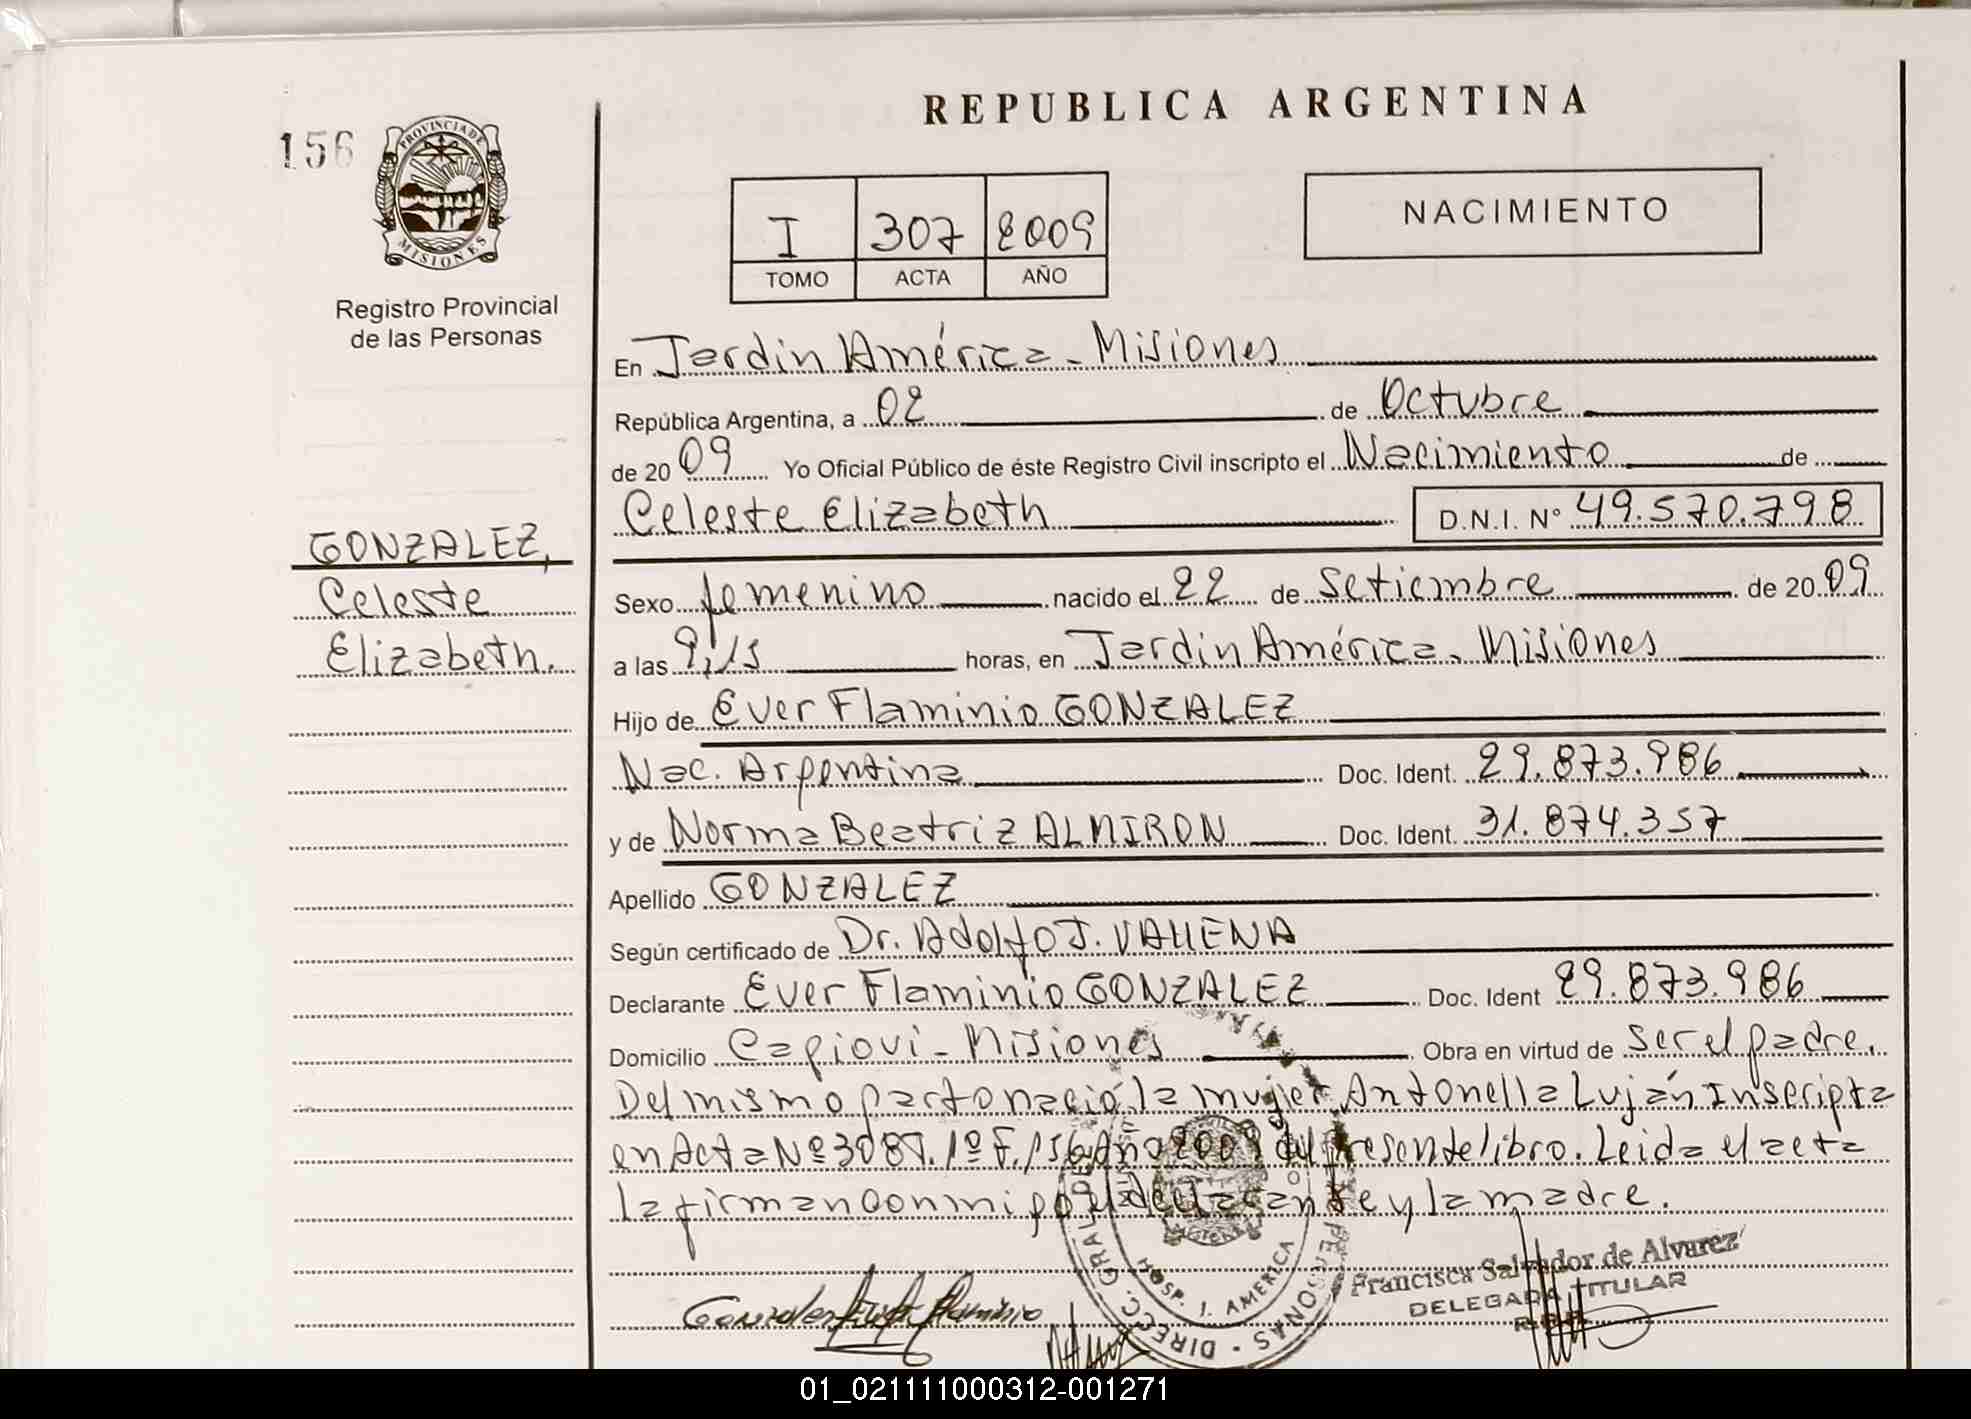 REPUBLICA ARGENTINA
156
PROVINCIA DE
MISIONES
Registro Provincial
de las Personas
I 307 2009
TOMO ACTA AÑO
NACIMIENTO
En Jardin América - Misiones
República Argentina, a 02 de Octubre
de 2009 Yo Oficial Público de éste Registro Civil inscripto el Nacimiento de
Celeste Elizabeth D.N.I. Nº 49.570.798
GONZALEZ,
Celeste
Elizabeth.
Sexo femenino nacido el 22 de Setiembre de 2009
a las 9,15 horas, en Jardin América - Misiones
Hijo de Ever Flaminio GONZALEZ
Nac. Argentina Doc. Ident. 29.873.986
y de Norma Beatriz ALMIRON Doc. Ident. 31.874.357
Apellido GONZALEZ
Según certificado de Dr. Adolfo J.
Declarante Ever Flaminio GONZALEZ Doc. Ident 29.873.986
Domicilio Capiovi - Misiones Obra en virtud de ser el padre.
Del mismo parto nació la mujer Antonella Luján Inscripta
en Acta Nº 308 T. 1º F. 156 Año 2009 del presente libro. Leida el acta
la firman conmigo el declarante y la madre.
DIRECC. GRAL. DE PERSONAS
HOSP. J. AMERICA
Francisca Salvador de Alvarez
DELEGADA TITULAR
R.P.P.
Gonzalez Ever Flaminio
01_021111000312-001271